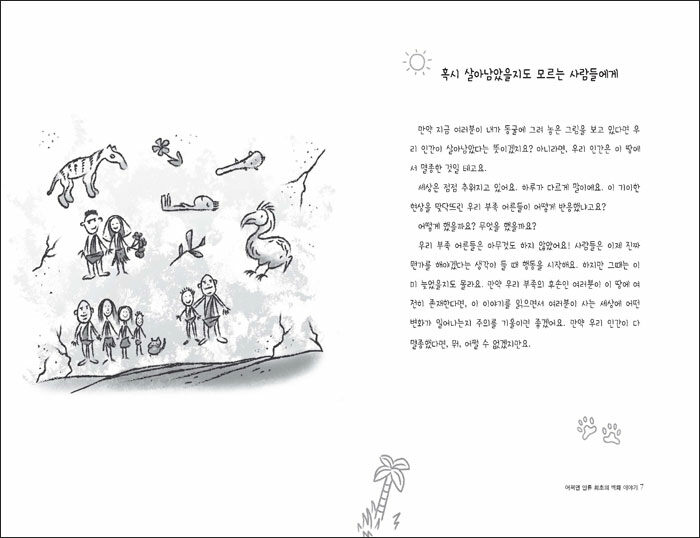 혹시 살아남았을지도 모르는 사람들에게
만약 지금 여러분이 내가 동굴에 그려 놓은 그림을 보고 있다면 우
리 인간이 살아남았다는 뜻이겠지요? 아니라면, 우리 인간은 이 땅에
서 멸종한 것일 테고요.
세상은 점점 추워지고 있어요. 하루가 다르게 말이에요. 이 기이한
현상을 맞닥뜨린 우리 부족 어른들이 어떻게 반응했냐고요?
어떻게 했을까요? 무엇을 했을까요?
우리 부족 어른들은 아무것도 하지 않았어요! 사람들은 이제 진짜
뭔가를 해야겠다는 생각이 들 때 행동을 시작해요. 하지만 그때는 이
미 늦었을지도 몰라요. 만약 우리 부족의 후손인 여러분이 이 땅에 여
전히 존재한다면, 이 이야기를 읽으면서 여러분이 사는 세상에 어떤
변화가 일어나는지 주의를 기울이면 좋겠어요. 만약 우리 인간이 다
멸종했다면, 뭐, 어쩔 수 없겠지만요.
어쩌면 인류 최초의 백패 이야기 7